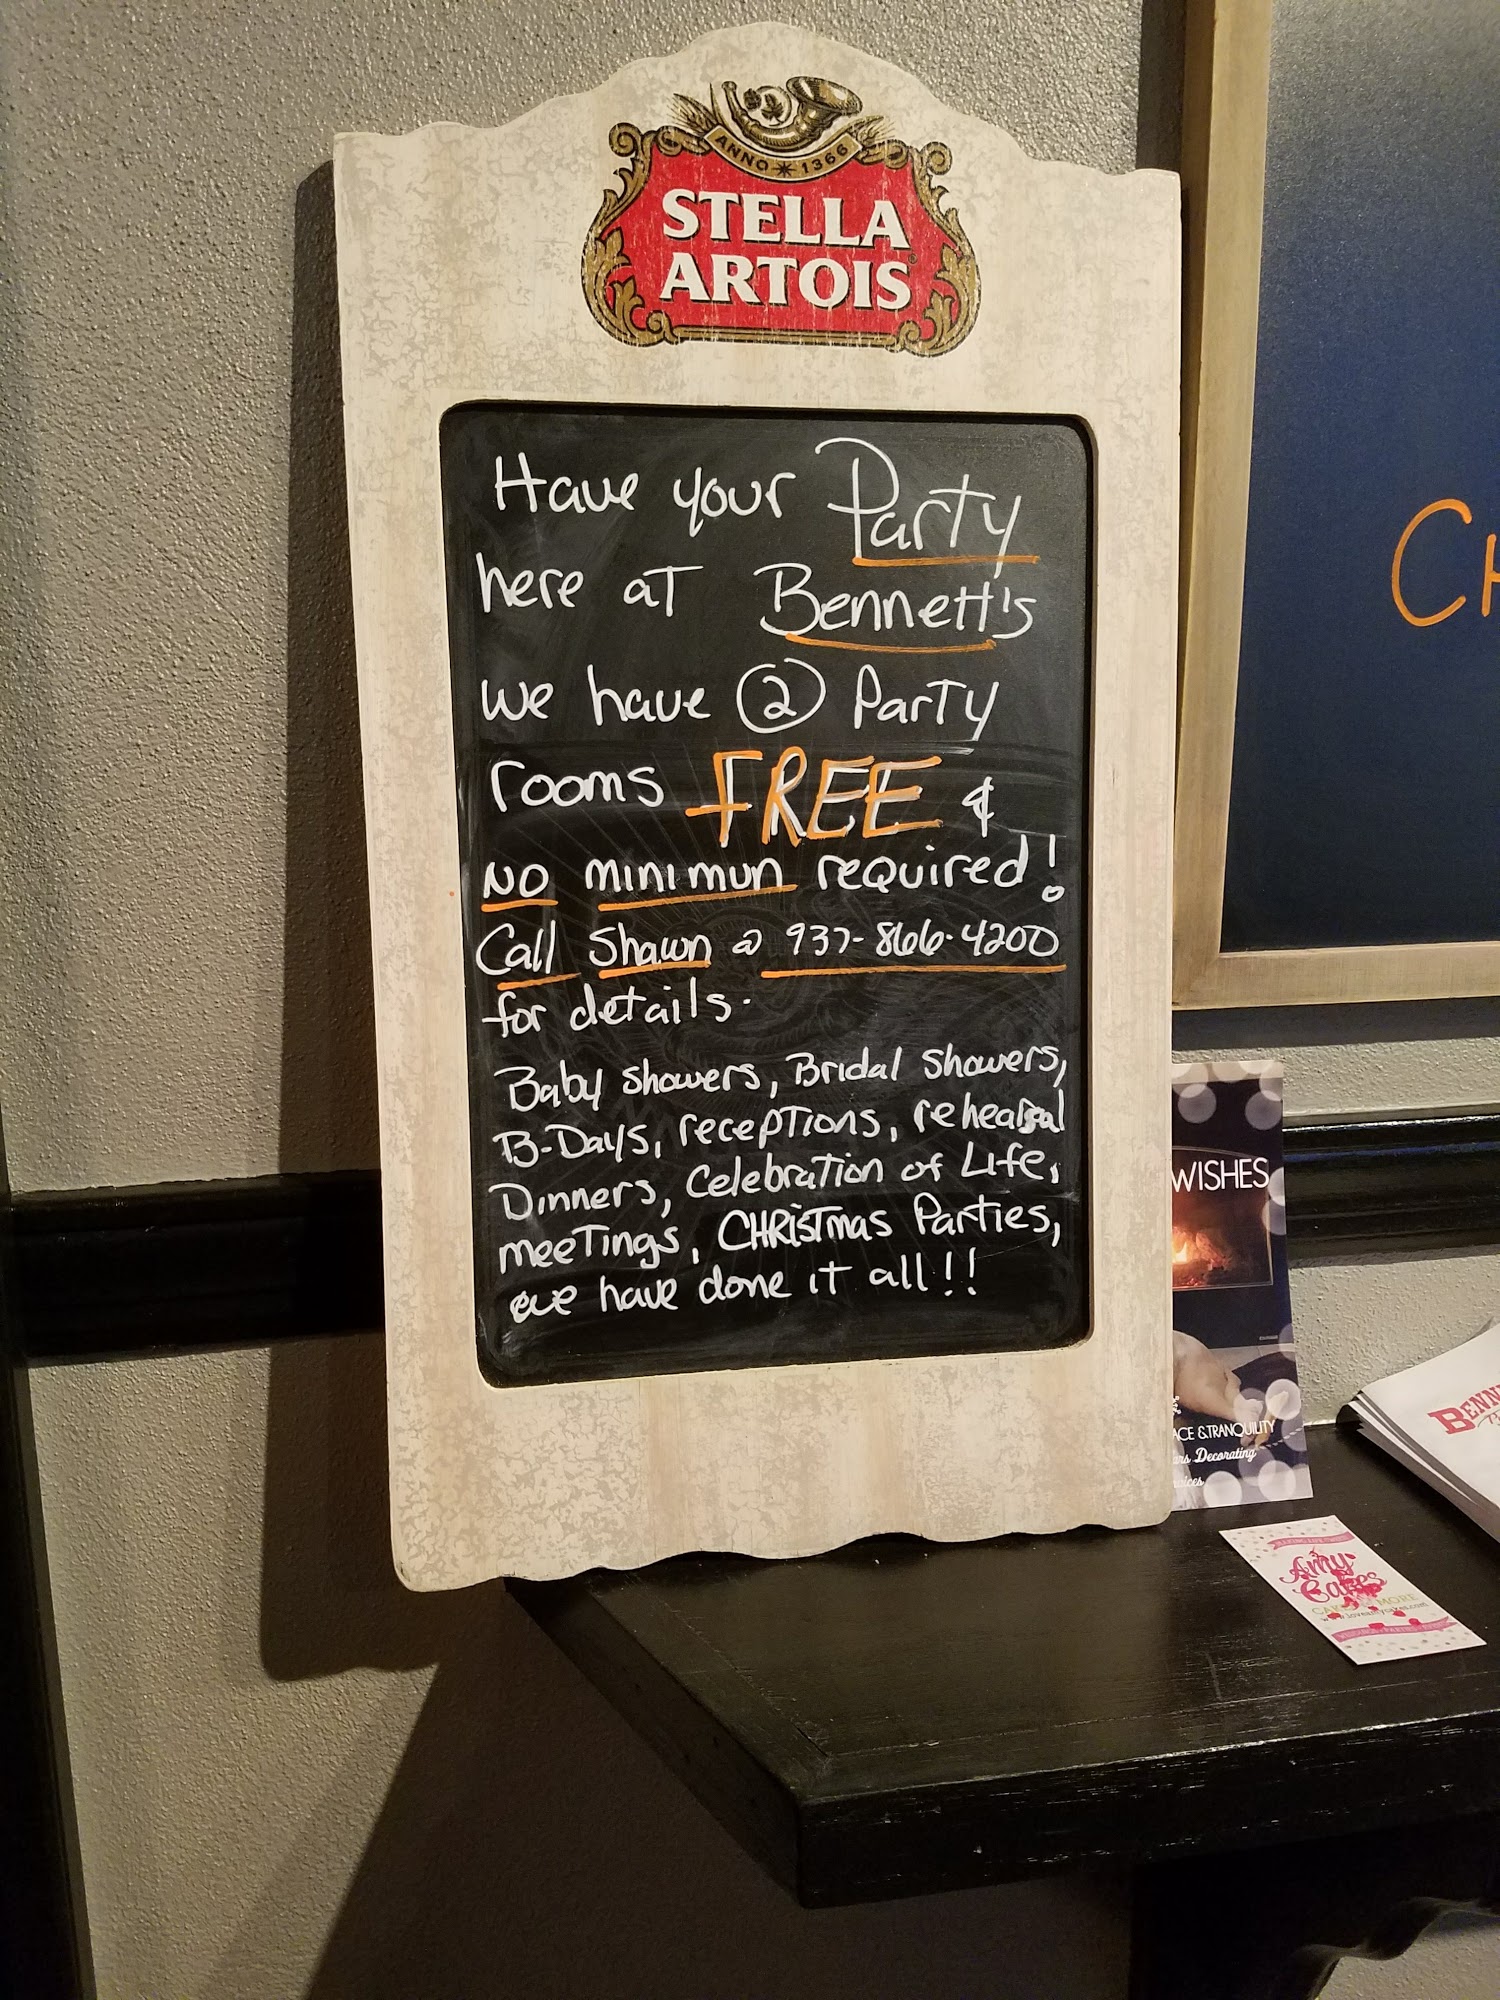 ANNO * 1366
STELLA
ARTOIS
Have your Party
here at Bennett's
we have 2 Party
rooms FREE &
NO minimun required!
Call Shawn @ 937-866-4200
for details.
Baby showers, Bridal showers,
B-Days, receptions, rehearsal
Dinners, Celebration of Life,
meetings, CHRISTmas Parties,
we have done it all!!
CH
WISHES
ACE & TRANQUILITY
Decorating
BENN
Amy
Cakes